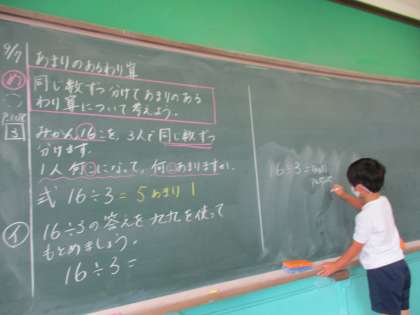 9/7
あまりのあるわり算
め
同じ数ずつ分けてあまりのある
わり算について考えよう。
P.108
3
みかん16こを、3人で同じ数ずつ
分けます。
1人何こになって、何こあまりますか。
式 16÷3=5あまり1
イ
16÷3の答えを九九を使って
もとめましょう。
16÷3=
16÷3=